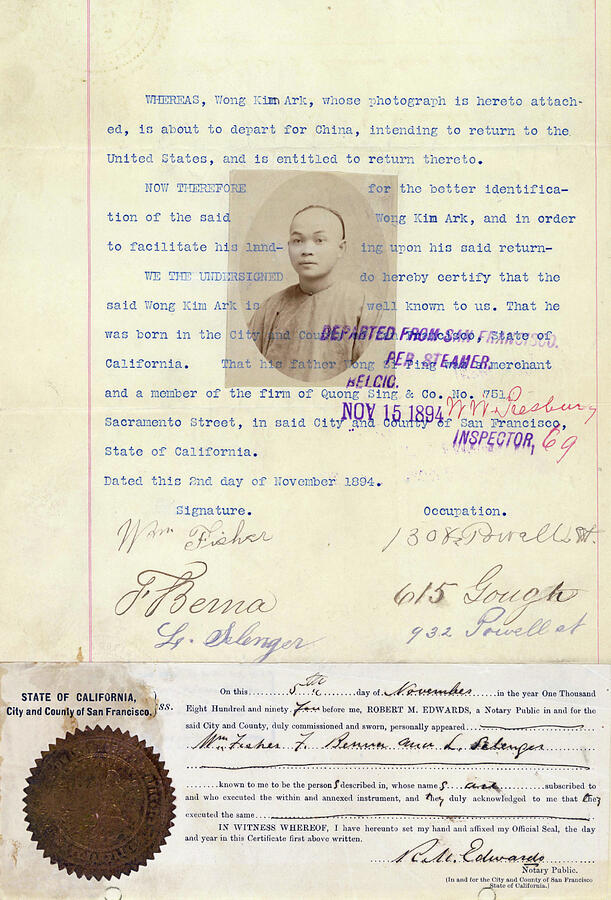 WHEREAS, Wong Kim Ark, whose photograph is hereto attach-
ed, is about to depart for China, intending to return to the
United States, and is entitled to return thereto.
NOW THEREFORE for the better identifica-
tion of the said Wong Kim Ark, and in order
to facilitate his land- ing upon his said return-
WE THE UNDERSIGNED do hereby certify that the
said Wong Kim Ark is well known to us. That he
was born in the City and State of
DEPARTED FROM SAN FRANCISCO.
California. That his father Wong Si Ping merchant
PER STEAMER,
and a member of the firm of Quong Sing & Co. No. 751
BELGIC.
NOV 15 1894
Sacramento Street, in said City and County of San Francisco,
INSPECTOR, 69
State of California.
Dated this 2nd day of November 1894.
Signature. Occupation.
Wm Fisher 1308 Powell St.
F Berna 615 Gough
L. Selenger 932 Powell st
STATE OF CALIFORNIA,
City and County of San Francisco. ss.
On this 5th day of November in the year One Thousand
Eight Hundred and ninety Four before me, ROBERT M. EDWARDS, a Notary Public in and for the
said City and County, duly commissioned and sworn, personally appeared
Wm Fisher F. Berna and L. Selenger
known to me to be the persons described in, whose names are subscribed to
and who executed the within and annexed instrument, and they duly acknowledged to me that they
executed the same.
IN WITNESS WHEREOF, I have hereunto set my hand and affixed my Official Seal, the day
and year in this Certificate first above written.
R. M. Edwards
Notary Public.
(In and for the City and County of San Francisco
State of California.)